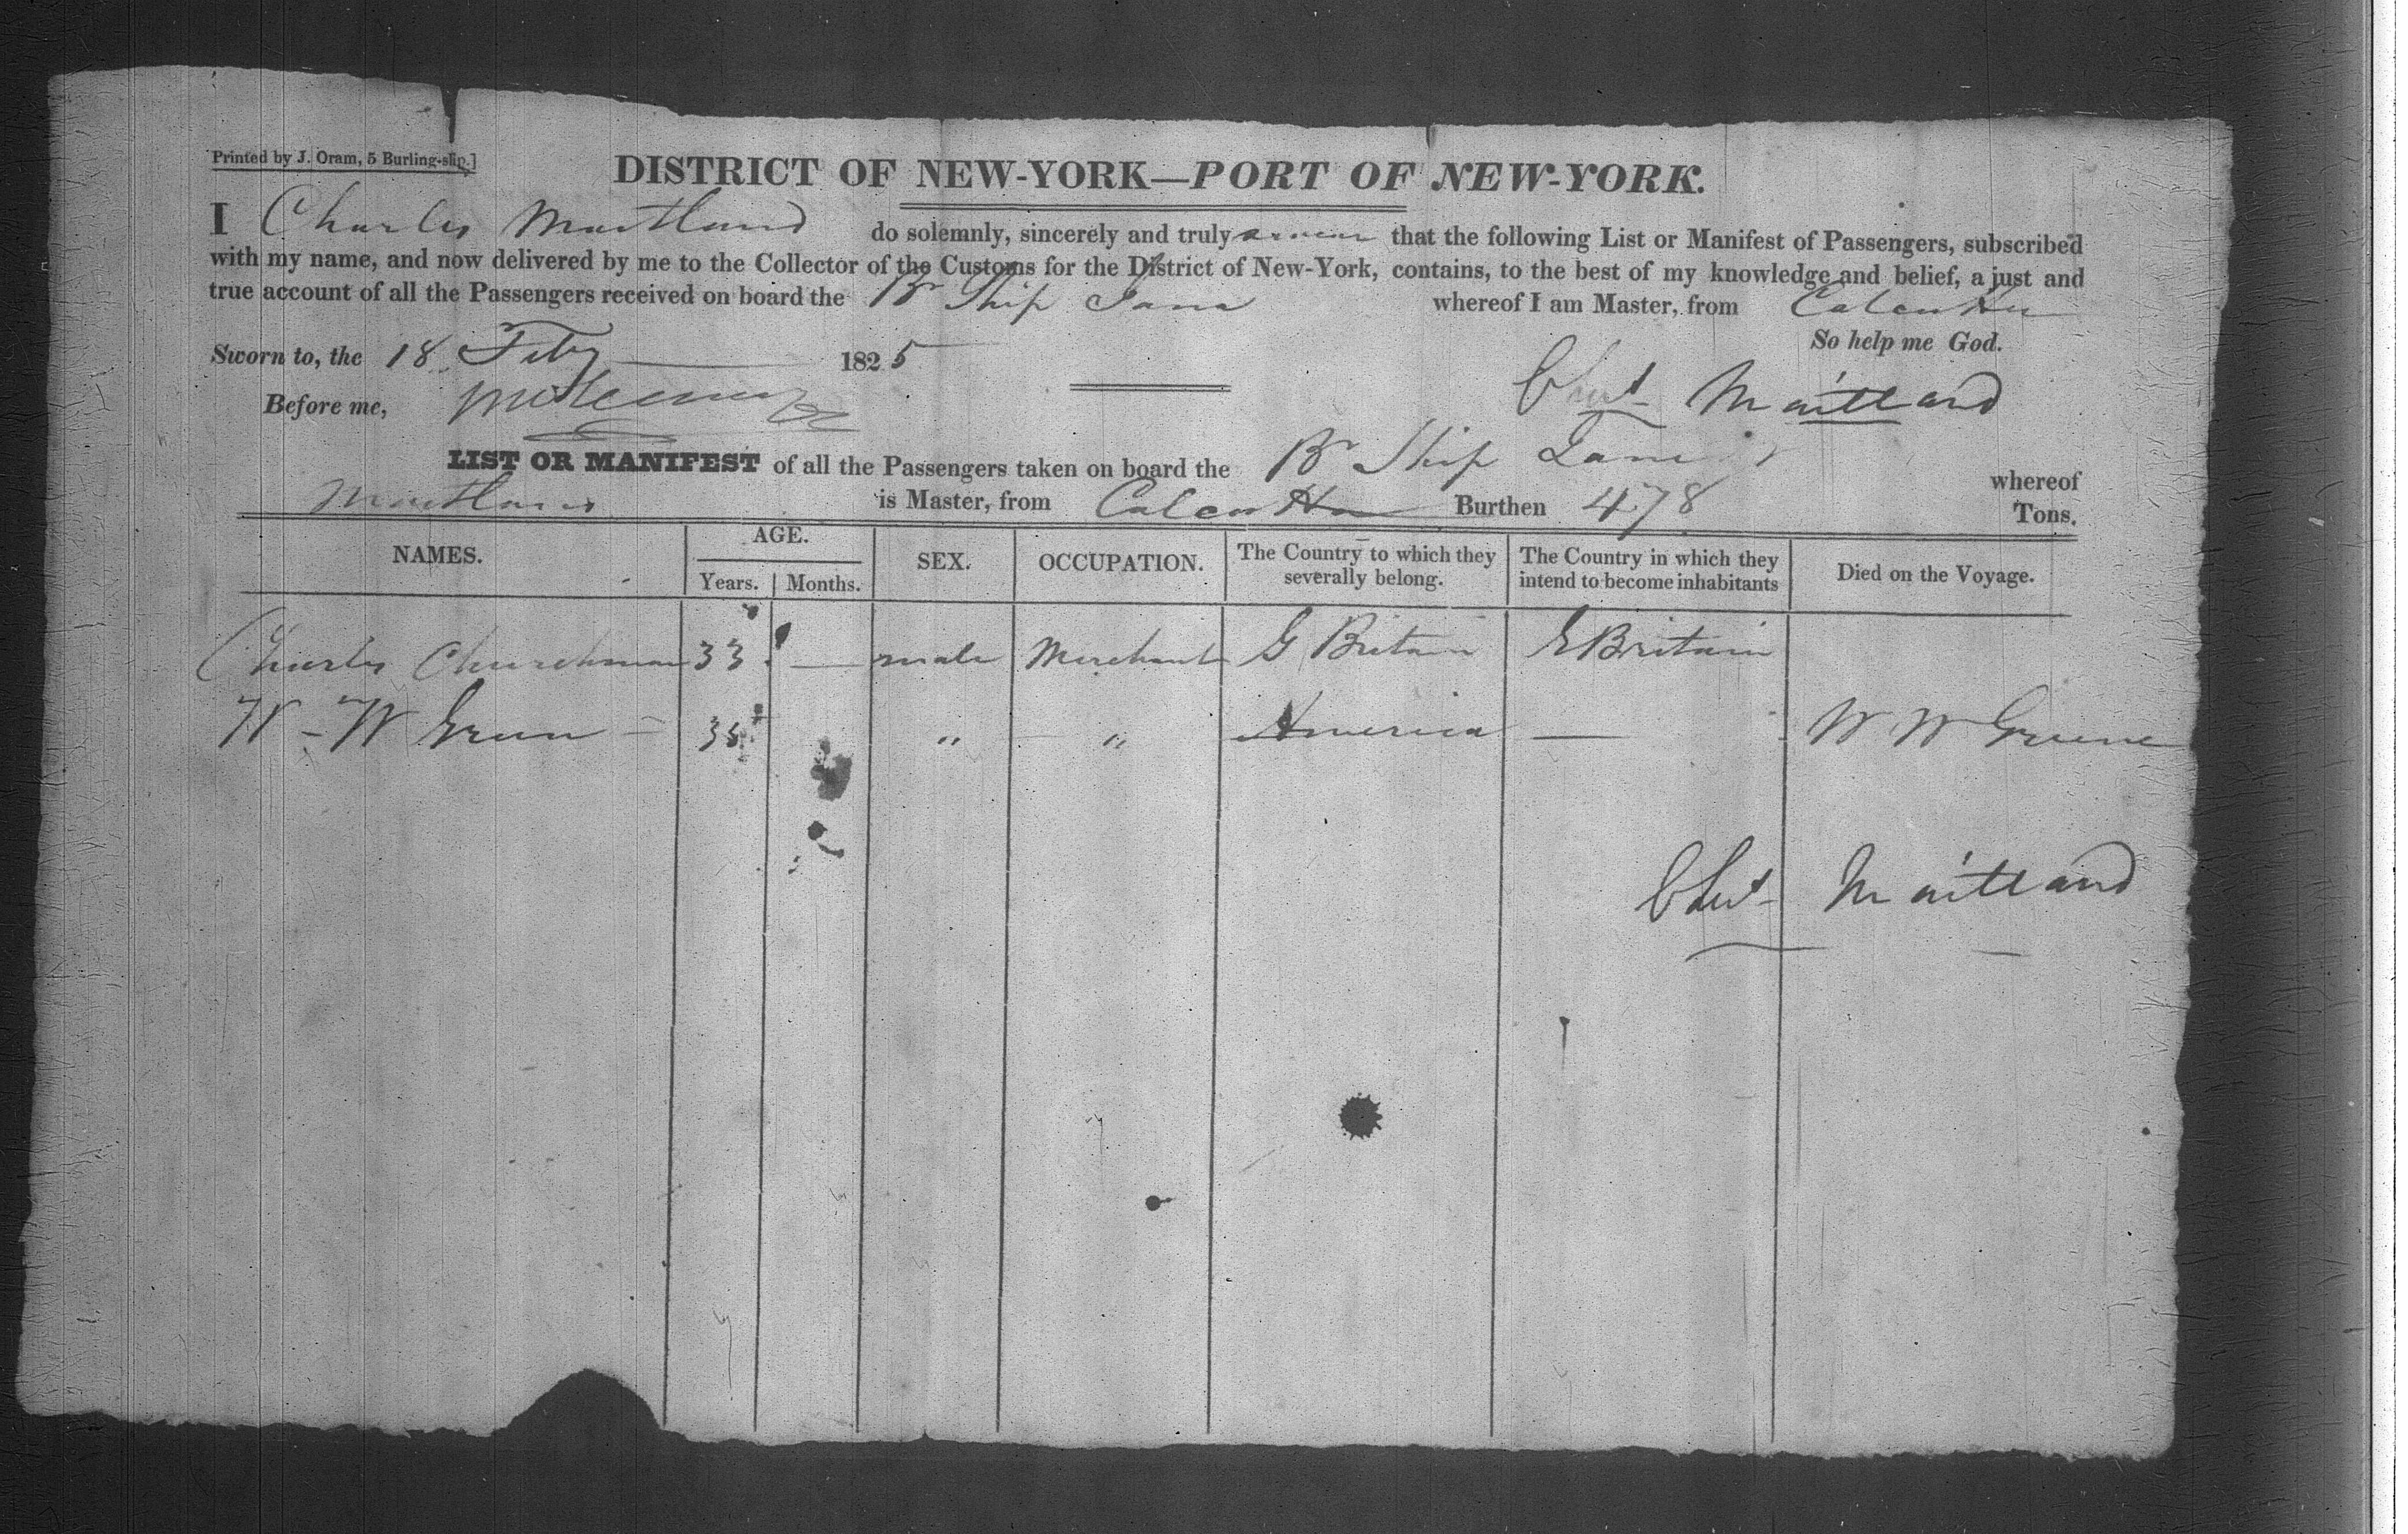 Printed by J. Oram, 5 Burling-slip.]
DISTRICT OF NEW-YORK—PORT OF NEW-YORK.
I Charles Maitland do solemnly, sincerely and truly swear that the following List or Manifest of Passengers, subscribed
with my name, and now delivered by me to the Collector of the Customs for the District of New-York, contains, to the best of my knowledge and belief, a just and
true account of all the Passengers received on board the Br Ship Jane whereof I am Master, from Calcutta
So help me God.
Sworn to, the 18 Feby 1825
Before me,
Maitland
LIST OR MANIFEST of all the Passengers taken on board the Br Ship Jane whereof
Maitland is Master, from Calcutta Burthen 478 Tons.
NAMES. AGE. SEX. OCCUPATION. The Country to which they severally belong. The Country in which they intend to become inhabitants Died on the Voyage.
Years. Months.
Charles Churchman 33 — male Merchant G Britain G Britain
W - W Green - 35 " " America — W W Greene
Maitland